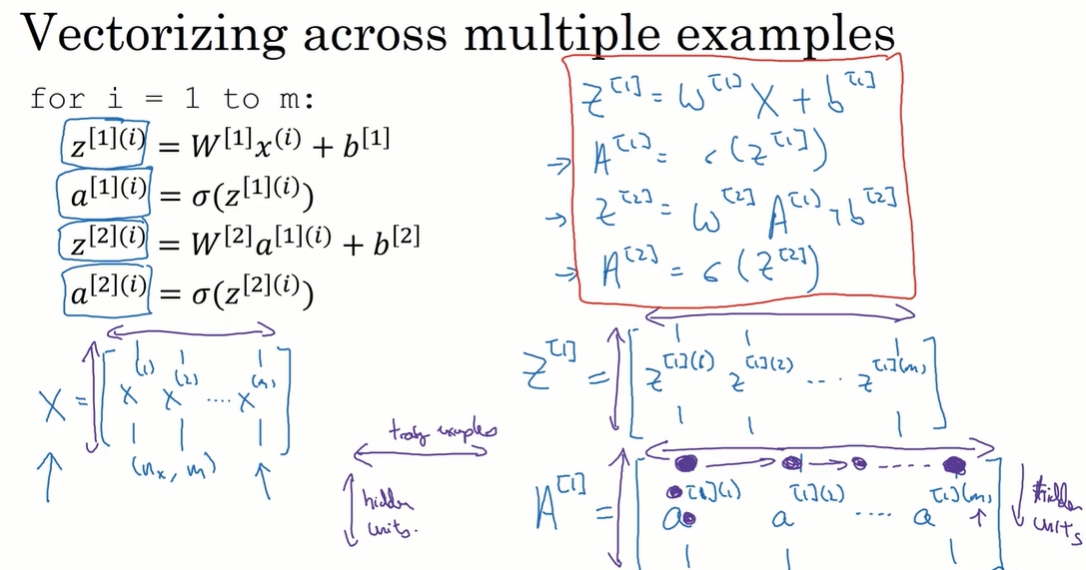 Vectorizing across multiple examples
for i = 1 to m:
z[1](i) = W[1]x(i) + b[1]
a[1](i) = σ(z[1](i))
z[2](i) = W[2]a[1](i) + b[2]
a[2](i) = σ(z[2](i))
Z[1] = W[1] X + b[1]
→ A[1] = σ(Z[1])
→ Z[2] = W[2] A[1] + b[2]
→ A[2] = σ(Z[2])
X = [x(1) x(2) .... x(m)]
(nx, m)
Z[1] = [z[1](1) z[1](2) ... z[1](m)]
examples
hidden
units.
A[1] = [a[1](1) a[1](2) .... a[1](m)]
hidden
units